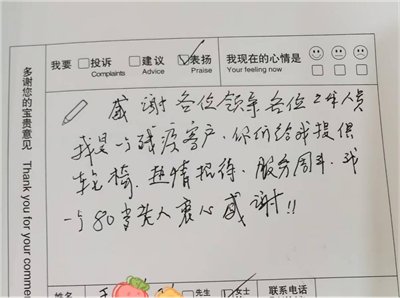 我要 投诉 建议 表扬 我现在的心情是
Complaints Advice Praise Your feeling now
多谢您的宝贵意见
Thank you for your comme
感谢各位领导各位工作人员
我是一个残疾客户，你们给我提供
轮椅，热情招待，服务周到，我
一个80岁老人衷心感谢!!
姓名 先生 女士 联系电话